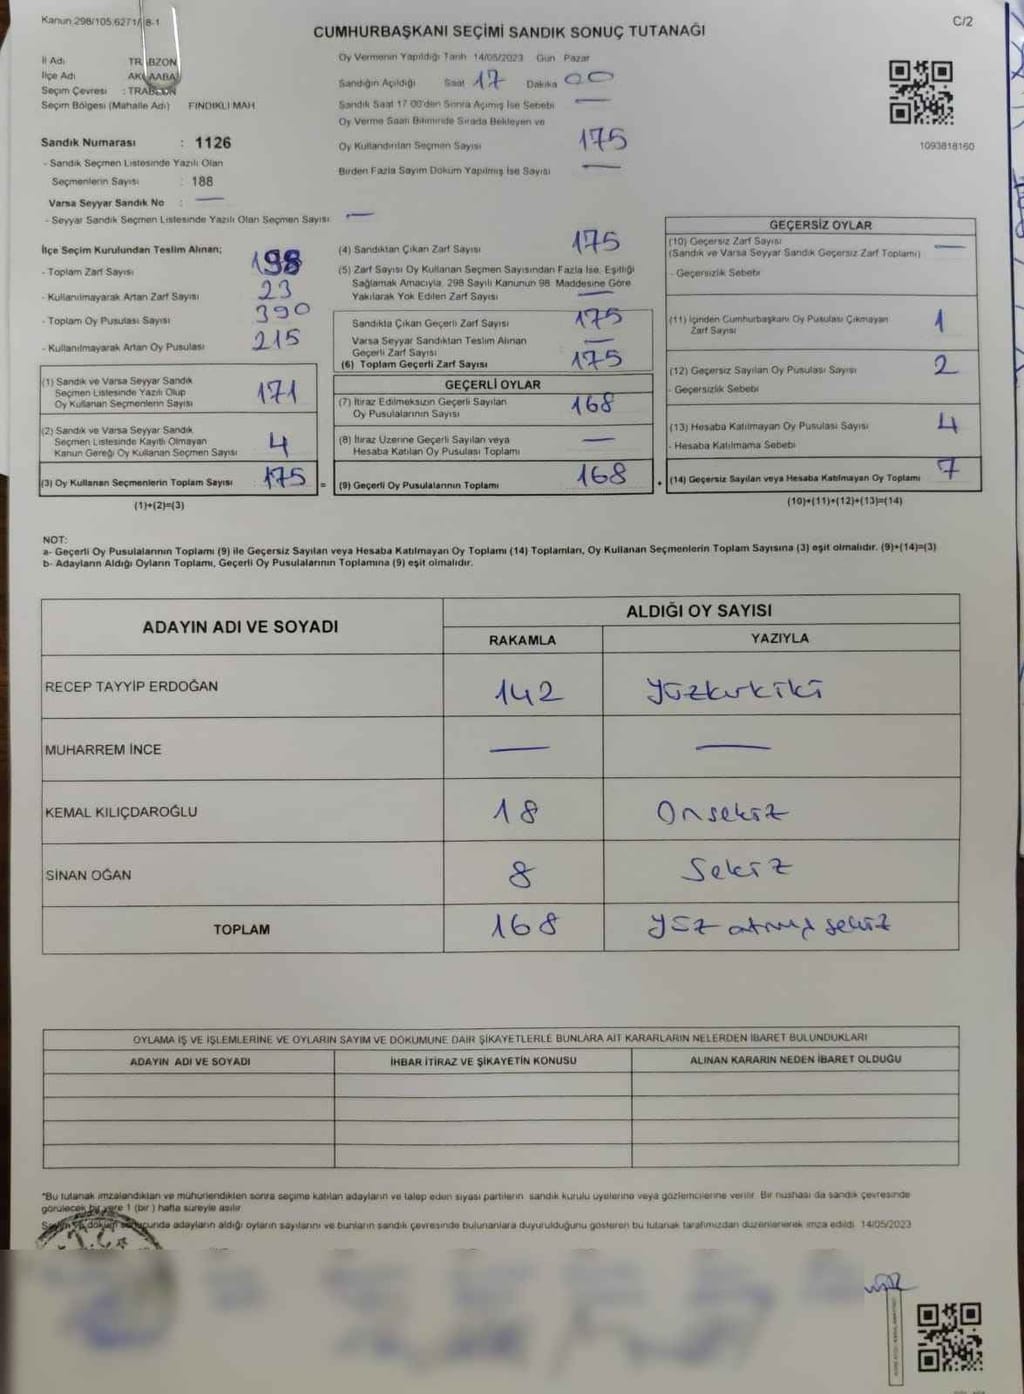 Kanun 298/105.6271/ 8-1
C/2
CUMHURBAŞKANI SEÇİMİ SANDIK SONUÇ TUTANAĞI
İl Adı TRABZON
İlçe Adı AK AABA
Seçim Çevresi : TRABZON
Seçim Bölgesi (Mahalle Adı) FINDIKLI MAH
Oy Vermenin Yapıldığı Tarih 14/05/2023 Gün Pazar
Sandığın Açıldığı Saat 17 Dakika 00
Sandık Saat 17 00'den Sonra Açılmış İse Sebebi —
Oy Verme Saati Bitiminde Sırada Bekleyen ve
Oy Kullandırılan Seçmen Sayısı 175
Birden Fazla Sayım Döküm Yapılmış İse Sayısı —
1093818160
Sandık Numarası : 1126
- Sandık Seçmen Listesinde Yazılı Olan
Seçmenlerin Sayısı : 188
Varsa Seyyar Sandık No : —
- Seyyar Sandık Seçmen Listesinde Yazılı Olan Seçmen Sayısı: —
İlçe Seçim Kurulundan Teslim Alınan;
- Toplam Zarf Sayısı 198
- Kullanılmayarak Artan Zarf Sayısı 23
- Toplam Oy Pusulası Sayısı 390
- Kullanılmayarak Artan Oy Pusulası 215
(1) Sandık ve Varsa Seyyar Sandık
Seçmen Listesinde Yazılı Olup
Oy Kullanan Seçmenlerin Sayısı 171
(2) Sandık ve Varsa Seyyar Sandık
Seçmen Listesinde Kayıtlı Olmayan
Kanun Gereği Oy Kullanan Seçmen Sayısı 4
(3) Oy Kullanan Seçmenlerin Toplam Sayısı 175 =
(1)+(2)=(3)
(4) Sandıktan Çıkan Zarf Sayısı 175
(5) Zarf Sayısı Oy Kullanan Seçmen Sayısından Fazla İse, Eşitliği
Sağlamak Amacıyla, 298 Sayılı Kanunun 98 Maddesine Göre
Yakılarak Yok Edilen Zarf Sayısı —
Sandıkta Çıkan Geçerli Zarf Sayısı 175
Varsa Seyyar Sandıktan Teslim Alınan
Geçerli Zarf Sayısı —
(6) Toplam Geçerli Zarf Sayısı 175
GEÇERLİ OYLAR
(7) İtiraz Edilmeksizin Geçerli Sayılan
Oy Pusulalarının Sayısı 168
(8) İtiraz Üzerine Geçerli Sayılan veya
Hesaba Katılan Oy Pusulası Toplamı —
(9) Geçerli Oy Pusulalarının Toplamı 168
GEÇERSİZ OYLAR
(10) Geçersiz Zarf Sayısı —
(Sandık ve Varsa Seyyar Sandık Geçersiz Zarf Toplamı)
- Geçersizlik Sebebi
(11) İçinden Cumhurbaşkanı Oy Pusulası Çıkmayan
Zarf Sayısı 1
(12) Geçersiz Sayılan Oy Pusulası Sayısı 2
- Geçersizlik Sebebi
(13) Hesaba Katılmayan Oy Pusulası Sayısı 4
- Hesaba Katılmama Sebebi
(14) Geçersiz Sayılan veya Hesaba Katılmayan Oy Toplamı 7
(10)+(11)+(12)+(13)=(14)
NOT:
a- Geçerli Oy Pusulalarının Toplamı (9) ile Geçersiz Sayılan veya Hesaba Katılmayan Oy Toplamı (14) Toplamları, Oy Kullanan Seçmenlerin Toplam Sayısına (3) eşit olmalıdır. (9)+(14)=(3)
b- Adayların Aldığı Oyların Toplamı, Geçerli Oy Pusulalarının Toplamına (9) eşit olmalıdır.
ADAYIN ADI VE SOYADI ALDIĞI OY SAYISI
RAKAMLA YAZIYLA
RECEP TAYYİP ERDOĞAN 142 yüzkırkiki
MUHARREM İNCE — —
KEMAL KILIÇDAROĞLU 18 Onsekiz
SİNAN OĞAN 8 Sekiz
TOPLAM 168 yüz atmış sekiz
OYLAMA İŞ VE İŞLEMLERİNE VE OYLARIN SAYIM VE DÖKÜMÜNE DAİR ŞİKAYETLERLE BUNLARA AİT KARARLARIN NELERDEN İBARET BULUNDUKLARI
ADAYIN ADI VE SOYADI İHBAR İTİRAZ VE ŞİKAYETİN KONUSU ALINAN KARARIN NEDEN İBARET OLDUĞU
*Bu tutanak imzalandıktan ve mühürlendikten sonra seçime katılan adayların ve talep eden siyasi partilerin sandık kurulu üyelerine veya gözlemcilerine verilir. Bir nüshası da sandık çevresinde
görülecek bir yere 1 (bir) hafta süreyle asılır.
Sayım ve döküm sonucunda adayların aldığı oyların sayılarını ve bunların sandık çevresinde bulunanlara duyurulduğunu gösteren bu tutanak tarafımızdan düzenlenerek imza edildi. 14/05/2023
T.C.